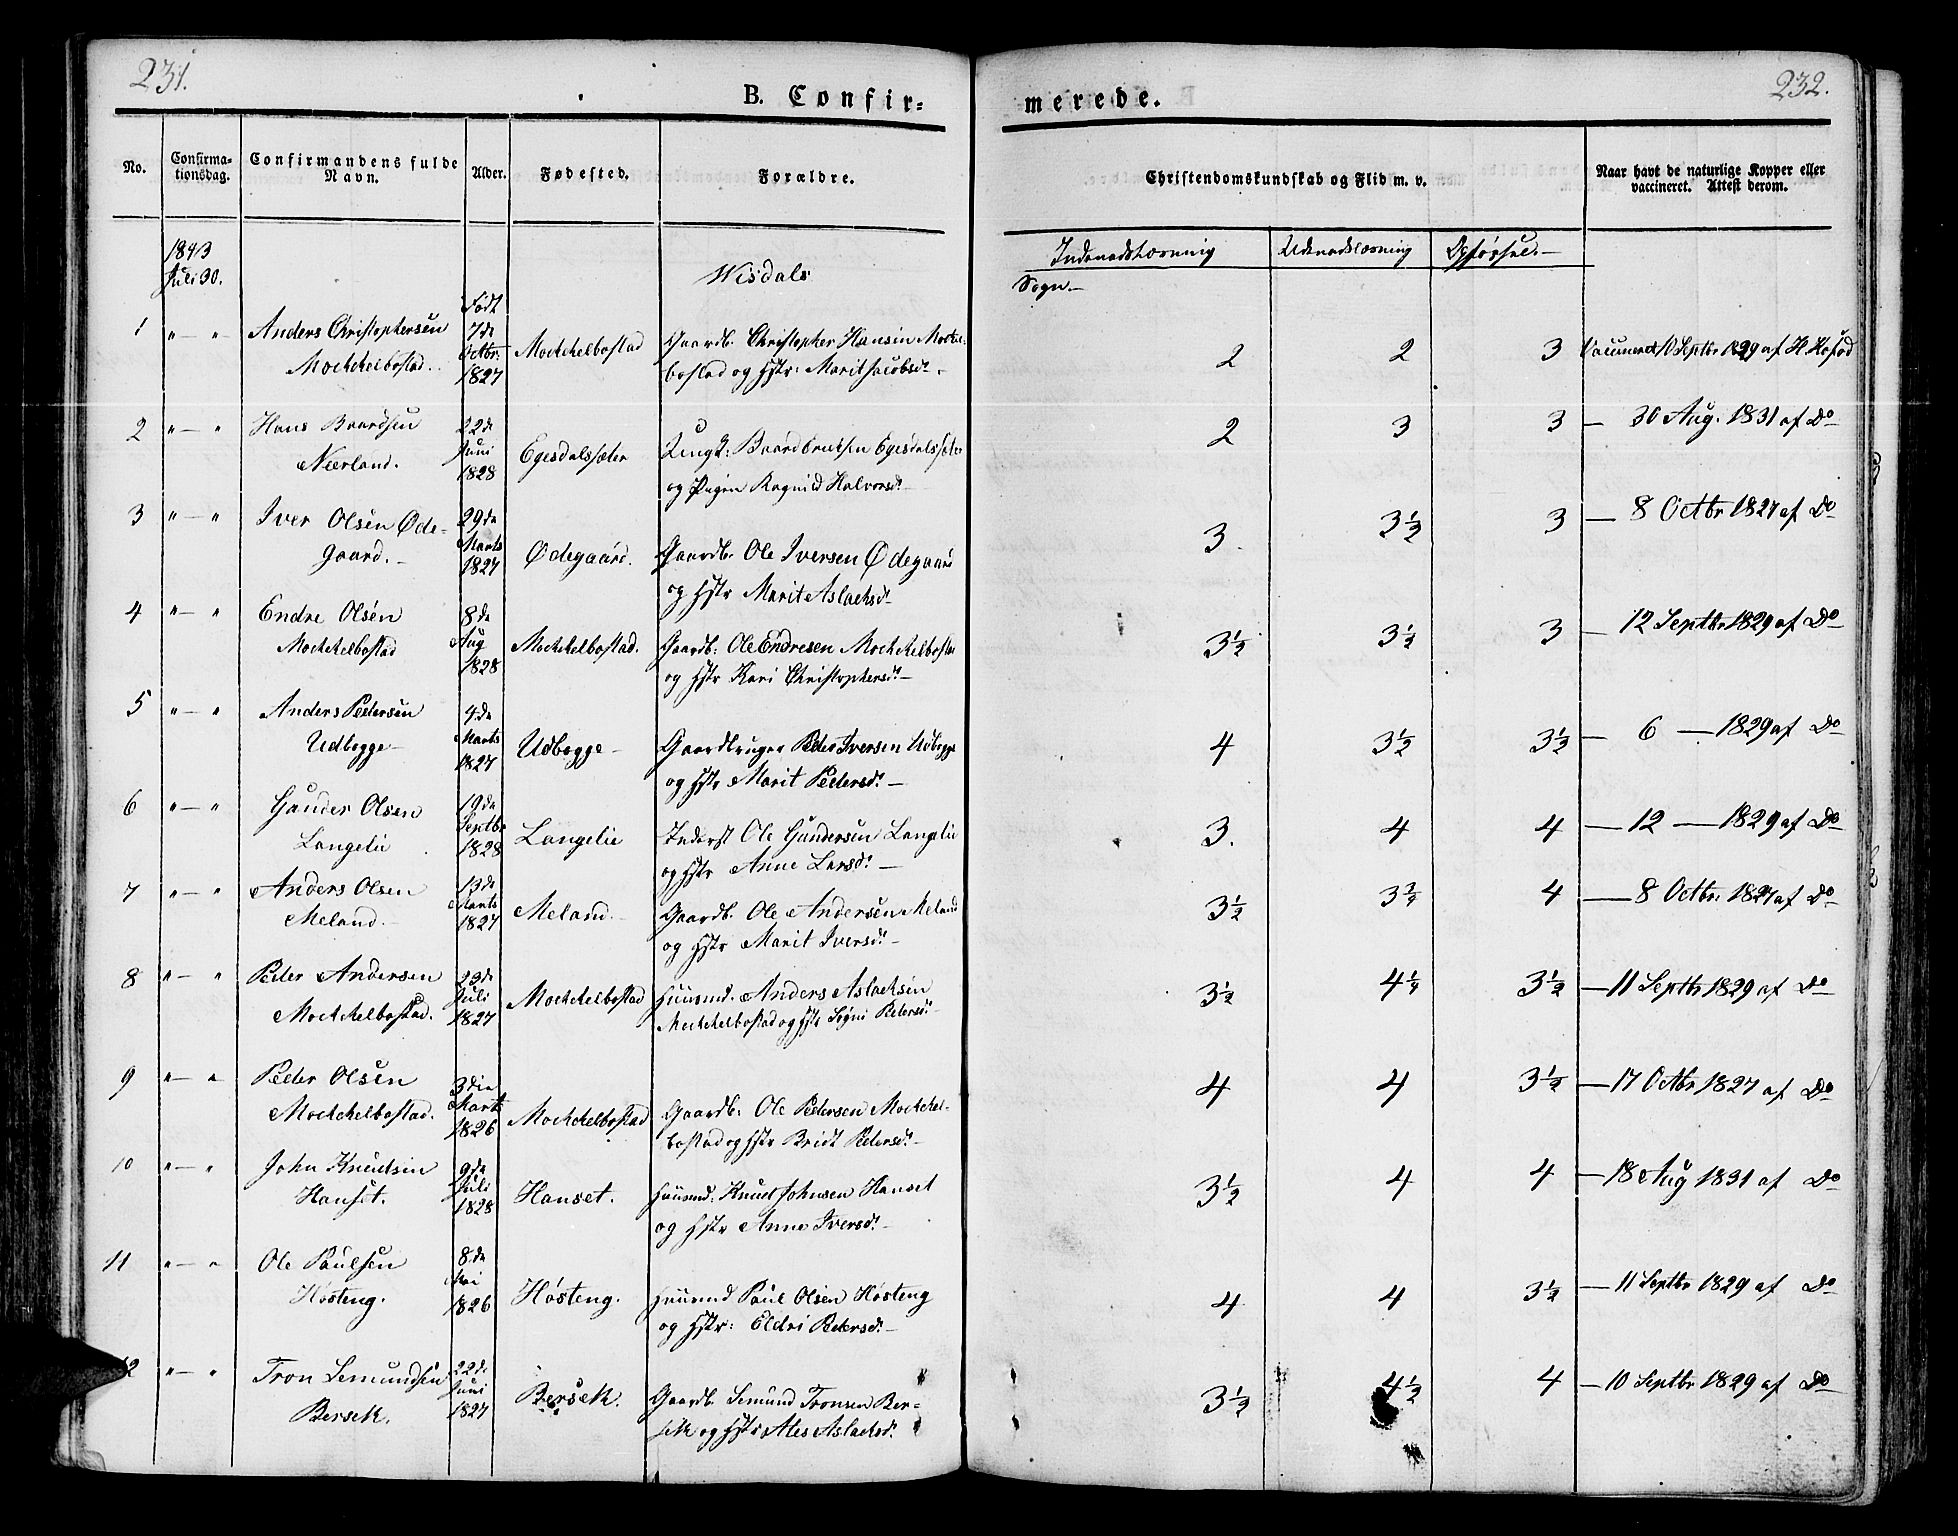 231.
232.
B. Confir-
merede.
No.
Confirma-
tionsdag.
Confirmandens fulde
Navn.
Alder.
Fødested.
Forældre.
Christendomskundskab og Flid m. v.
Naar havt de naturlige Kopper eller
vaccineret. Attest derom.
1843
Juli 30.
Wisdals
Sogn.-
Indenadslæsning
Udenadslæsning
Opførsel.-
1 " — " Anders Christophersen
Mochelbostad.
Født
7de
Octbr.
1827
Mochelbostad
Gaardb. Christopher Hansen Mochel-
bostad og Hstr: Marit Jacobsdr.
2 2 3 Vaccineret 10 Septbr 1829 af H. Hofod
2 " — " Hans Baardsen
Nærland.
22de
Juni
1828
Egesdalssæter
Ungk: Baard Egesdalssæter
og Pigen Ragnild Halvorsdr —
2 3 3 — 30 Aug. 1831 af Do
3 " — " Iver Olsen Øde-
gaard.-
29de
Marts
1827
Ødegaard.
Gaardb. Ole Iversen Ødegaard
og Hstr Marit Aslachsdr —
3. 3½ 3 — 8 Octbr 1827 af Do
4 " — " Endre Olsen
Mochelbostad
8de
Aug
1828
Mochelbostad.
Gaardb: Ole Endresen Mochelbostad
og Hstr Kari Christophersdr —
3½ 3½ 3 — 12 Septbr 1829 af Do
5 " — " Anders Pedersen
Udbygge —
4.de
Marts
1827
Udbygge —
Gaardbruger Peder Iversen Udbygge
og Hstr Marit Pedersdr —
4 3½ 3½ — 6 — 1829 af Do
6 " — " Gunder Olsen
Langelie
19de
Septbr
1828
Langelie
Inderst Ole Gundersen Langelie
og Hstr Anne Larsdr —
3. 4 4 — 12 — 1829 af Do
7 " — " Anders Olsen
Meland. —
13de
Marts
1827
Meland. —
Gaardb. Ole Andersen Meland
og Hstr Marit Iversdr —
3½ 3¾ 4 — 8 Octbr. 1827 af Do
8 " — " Peder Andersen
Mochelbostad.
23de
Juli
1827
Mochelbostad
Huusmd. Anders Aslachsen
Mochelbostad og Hstr Signi Pedersdr —
3½ 4¼ 3½ — 11 Septbr 1829 af Do
9 " — " Peder Olsen
Mochelbostad.
3die
Marts
1826
Mochelbostad
Gaardb: Ole Pedersen Mochel-
bostad og Hstr Bridt Pedersdr —
4 4 3½ — 17 Octbr 1827 af Do
10 " — " John Knudsen
Hanset.
9de
Juli
1828
Hanset.
Huusmd: Knud Johnsen Hanset
og Hstr Anne Iversdr —
3½ 4 4 — 18 Aug 1831 af Do
11 " — " Ole Paulsen
Høsteng.
8.de
Mai
1826
Høsteng.
Huusmd Paul Olsen Høsteng
og Hstr: Eldri Pedersdr —
4 4 3½ — 11 Septbr 1829 af Do
12 " — " Tron Semundsen
Bersek.
22de
Juni
1827
Bersek.
Gaardb. Semund Tronsen Ber-
sek og Hstr Ales Aslachsdr
3½ 4½ 4 — 10 Septbr 1829 af Do